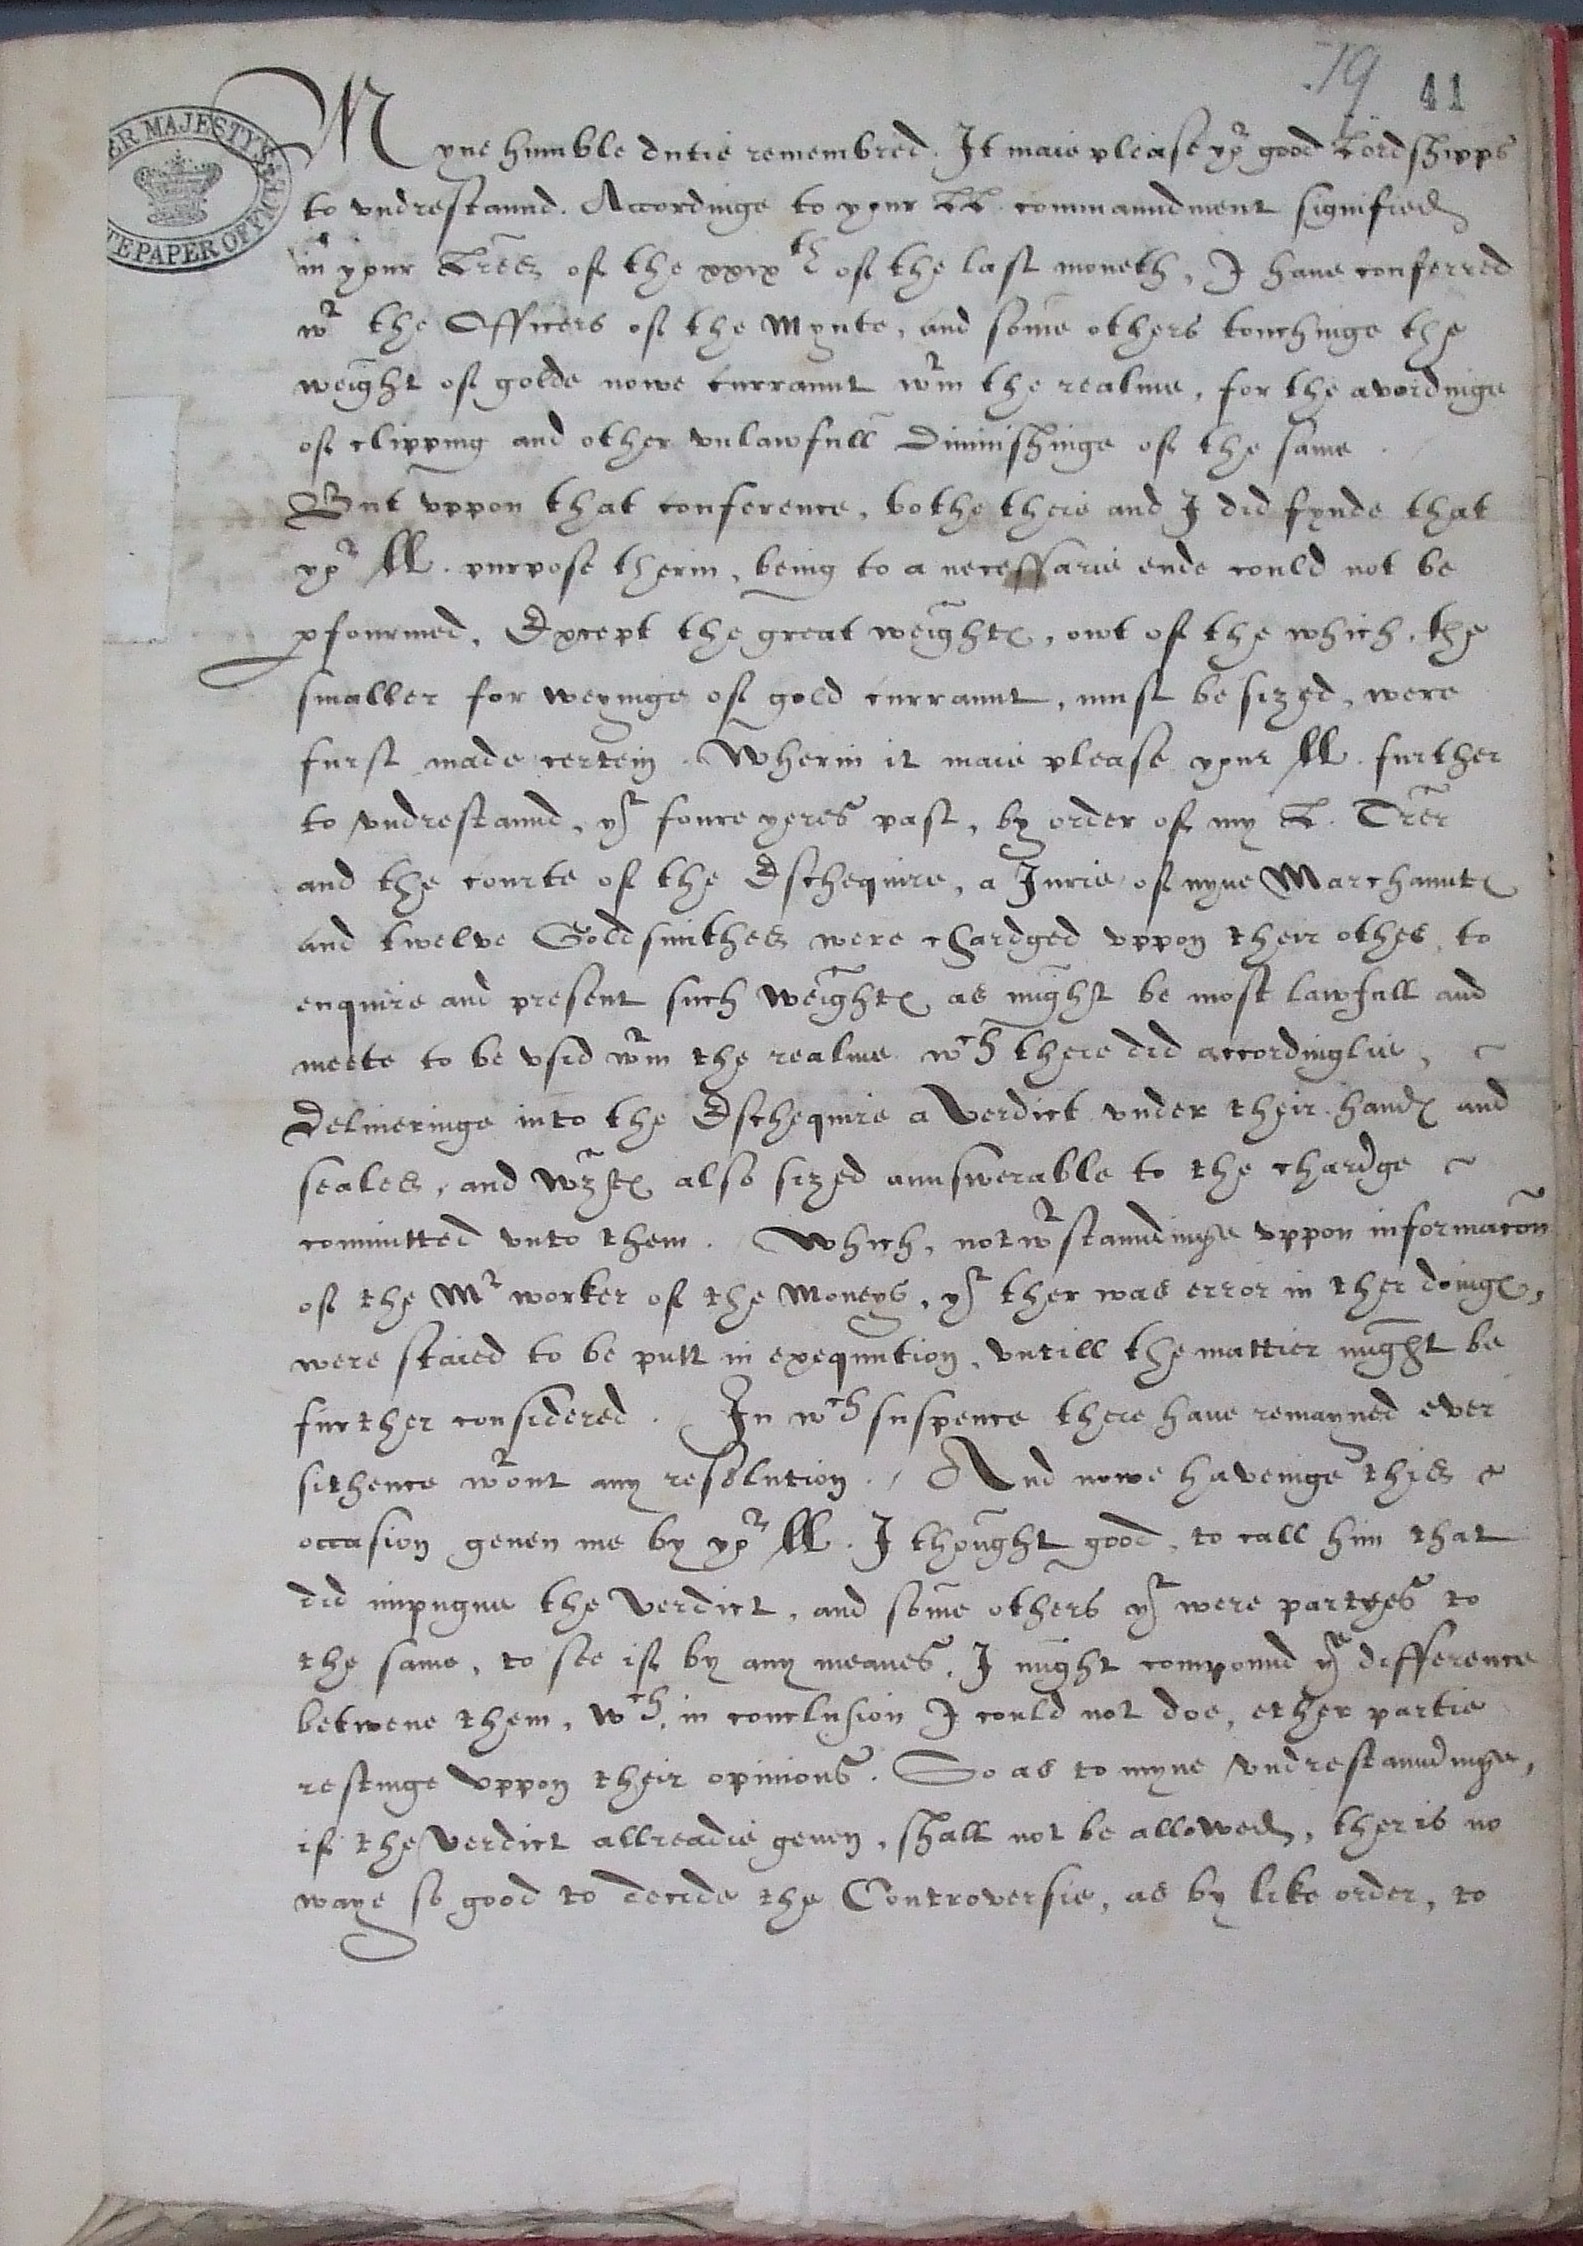 79 41
HER MAJESTY'S STATE PAPER OFFICE
Myne humble dutie remembred. It maie please yor good Lordshipps
to vndrestaund. Accordinge to your LL. commaundment signified
in your Lres of the xxixth of the last moneth, I haue conferred
wt the Officers of the Mynte, and some others touchinge the
weight of golde nowe curraunt wtin the realme, for the avoidinge
of clipping and other vnlawfull diminishinge of the same.
But vppon that conference, bothe theie and I did fynde that
yor ll. purpose therin, being to a necessarie ende could not be
pfourmed, Except the great weightes, owt of the which, the
smaller for weyinge of gold curraunt, must be sized, were
furst made certein. Wherin it maie please your ll. further
to vndrestaund, yt foure yeres past, by order of my L. Trer
and the courte of the Eschequire, a Jurie of nyne Marchauntes
and twelve Goldsmithes were chardged vppon their othes, to
enquire and present such weightes as might be most lawfull and
meete to be vsid wtin the realme wch theie did accordinglie,
Deliueringe into the Eschequire a Verdict vnder their handes and
seales, and wightes also sized aunswerable to the chardge
committed vnto them. Which, notwtstaundinge vppon informacon
of the Mr worker of the Moneys, yt ther was error in ther doinges,
were staied to be putt in exequution, vntill the mattier might be
further considered. In wch suspence theie haue remayned ever
sithence wtout any resolution. And nowe haveinge this
occasion geuen me by yor ll. I thought good, to call him that
did impugne the Verdict, and some others yt were partyes to
the same, to see if by any meanes, I might compound ye difference
betwene them, wch, in conclusion I could not doe, ether partie
restinge vppon their opinions. So as to myne vndrestaundinge,
if the Verdict allreadie geuen, shall not be allowed, ther is no
waye so good to decide the Controversie, as by like order, to